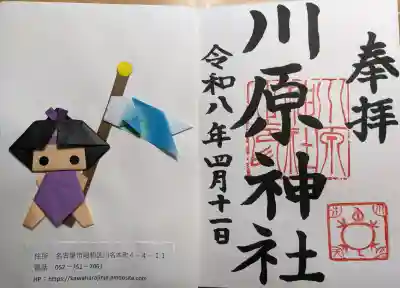 奉拝
川原神社
令和八年四月十一日
住所 名古屋市昭和区川名本町4-4-11
電話 052-751-7063
HP：https://kawaharajinjamizuta.com